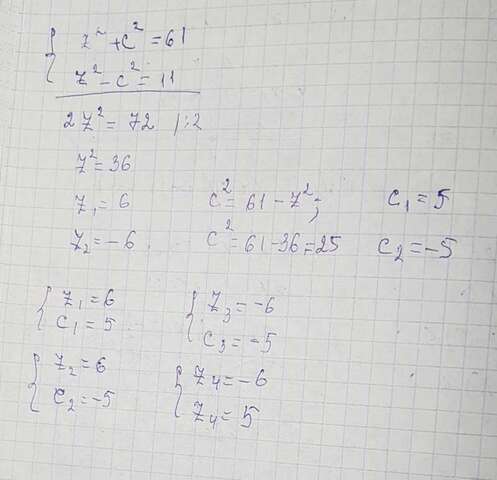 z² + c² = 61
z² - c² = 11
2z² = 72 | :2
z² = 36
z₁ = 6 c² = 61 - z²; c₁ = 5
z₂ = -6 c² = 61 - 36 = 25 c₂ = -5
z₁ = 6 z₃ = -6
c₁ = 5 c₃ = -5
z₂ = 6 z₄ = -6
c₂ = -5 z₄ = 5